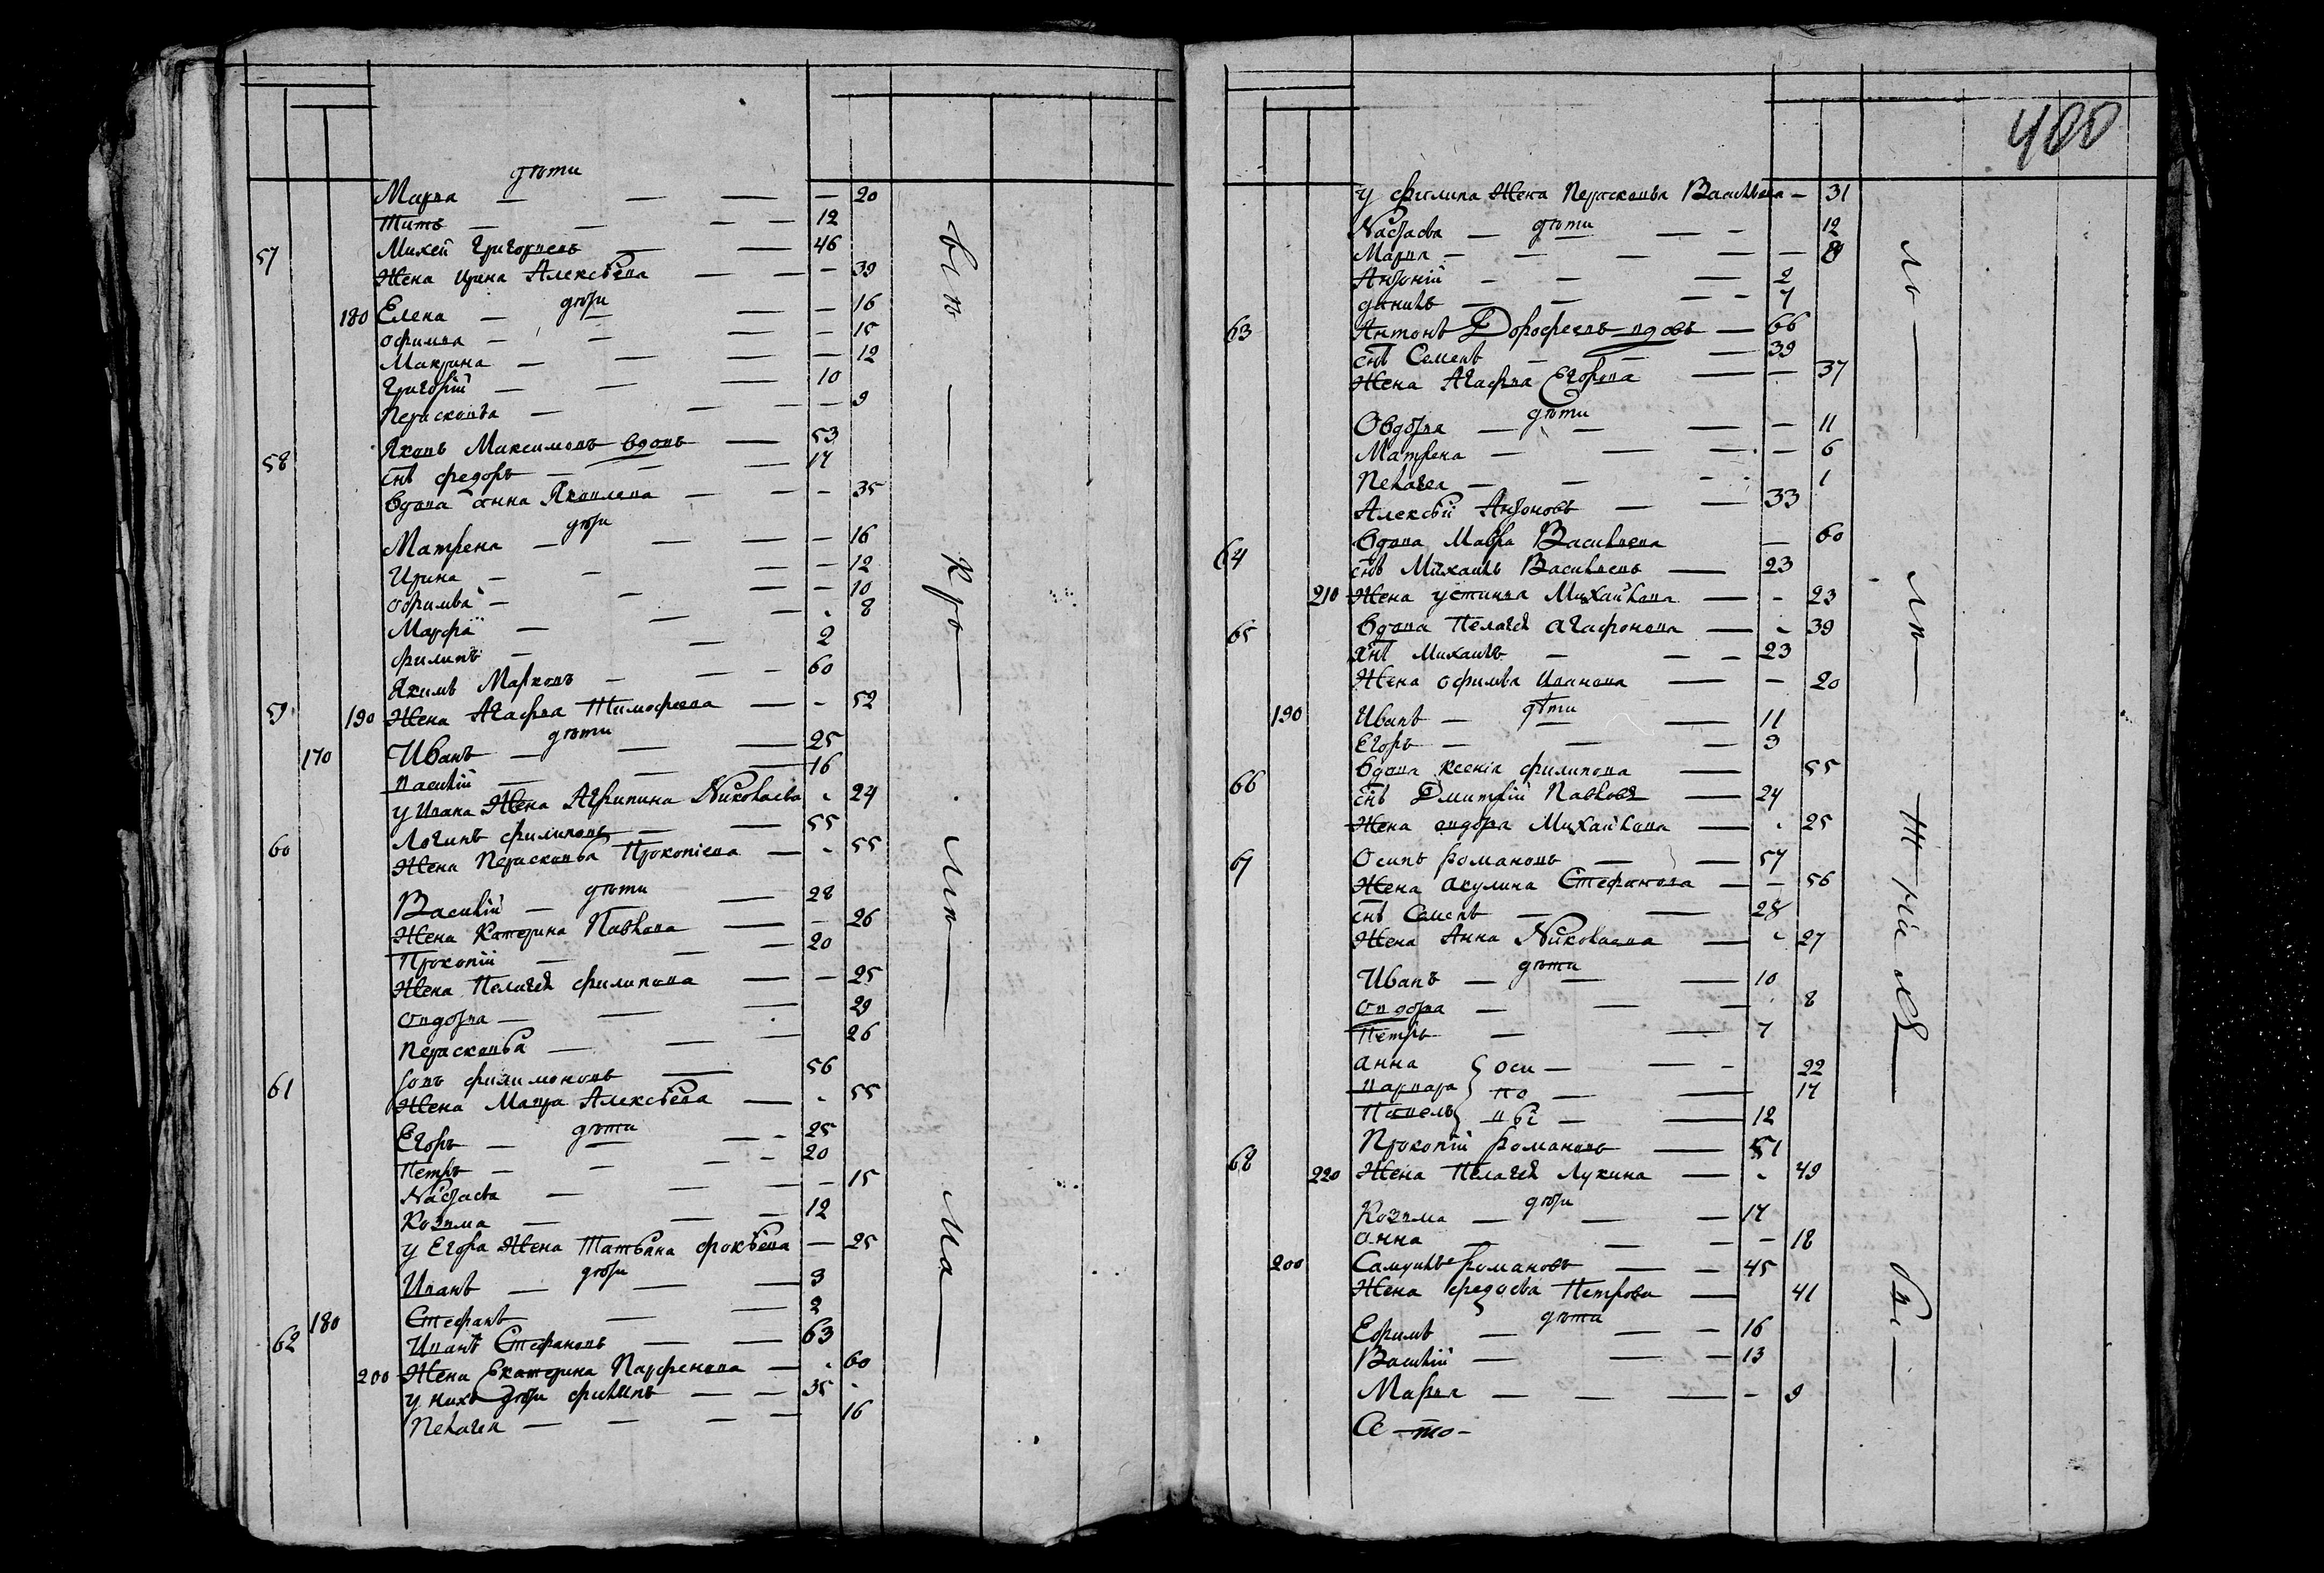 дѣти
Марѳа — — — — 20
Титъ — — — — 12
57 Михей Григорьевъ — — 46
Жена Ирина Алексѣева — — — 39
дѣти
180 Елена — — — — 16
Офимья — — — — 15
Макрина — — — — 12
Григорій — — — 10
Перасковья — — — — 9
58 Яковъ Максимовъ вдовъ — 53
снъ Федоръ — — — 17
вдова Анна Яковлева — — — 35
дѣти
Матрена — — — — 16
Ирина — — — — 12
Офимья — — — 10
Марфа — — — 8
Филипъ — — 2
Якимъ Марковъ — — — 60
59 190 Жена Агафья Тимофеева — - 52
дѣти
170 Иванъ — — — 25
Василій — — — 16
у Ивана Жена Агрипина Николаева 24
60 Логинъ Филиповъ — — 55
Жена Перасковья Прокопіева — 55
дѣти
Василій — — — 28
Жена Катерина Павлова — — 26
Прокопій — — — 20
Жена Пелагея Филипова — — 25
Овдотья — — — 29
Перасковья — — — 26
61 Филимоновъ — 56
Жена Мавра Алексѣева — 55
дѣти
Егоръ — — — 25
Петръ — — — 20
Настасья — — — — 15
Козма — — — 12
у Егора Жена Татьяна Фокѣева — 25
дѣти
Иванъ — — — 3
180 Стефанъ — — 2
62 Иванъ Стефановъ — — 63
200 Жена Екатерина Парфенова — 60
у нихъ дѣти Филипъ — — 35
Пелагея — — — — 16
400
у Филипа Жена Перасковья Васильева — 31
дѣти
Настасья — — - 12
Марья — — — — — 8
Антоній — — — 2
Данилъ — — — 7
63 Антонъ Дорофеевъ вдовъ — 66
снъ Семенъ — — — 39
Жена Агафья Егорова — — 37
дѣти
Овдотья — — — — 11
Матрена — — — — 6
Пелагея — — - 1
Алексѣй Антоновъ — — 33
64 вдова Мавра Васильева — 60
снъ Михаилъ Васильевъ — 23
210 Жена Устинья Михайлова — - 23
65 вдова Пелагея Агафонова — 39
снъ Михаилъ — — — 23
Жена Офимья Иванова — — 20
дѣти
190 Иванъ — — — 11
Егоръ — — — 3
66 вдова Ксенія Филипова — 55
снъ Дмитрій Павловъ — 24
Жена Овдотья Михайлова — 25
67 Осипъ Романовъ — — 57
Жена Акулина Стефанова — — 56
снъ Семенъ — — 28
Жена Анна Николаева — 27
дѣти
Иванъ — — — 10
Овдотья — — — 8
Петръ — — 7
Анна } Оси — — - 22
Варвара } по — — 17
Павелъ } вы — — 12
68 Прокопій Романовъ — 51
220 Жена Пелагея Лукина — 49
дѣти
Козма — — — 17
Анна — — — — 18
200 Самуилъ Романовъ — — 45
Жена Федосья Петрова — 41
дѣти
Ефимъ — — — 16
Василій — — — 13
Марья — — — — 9